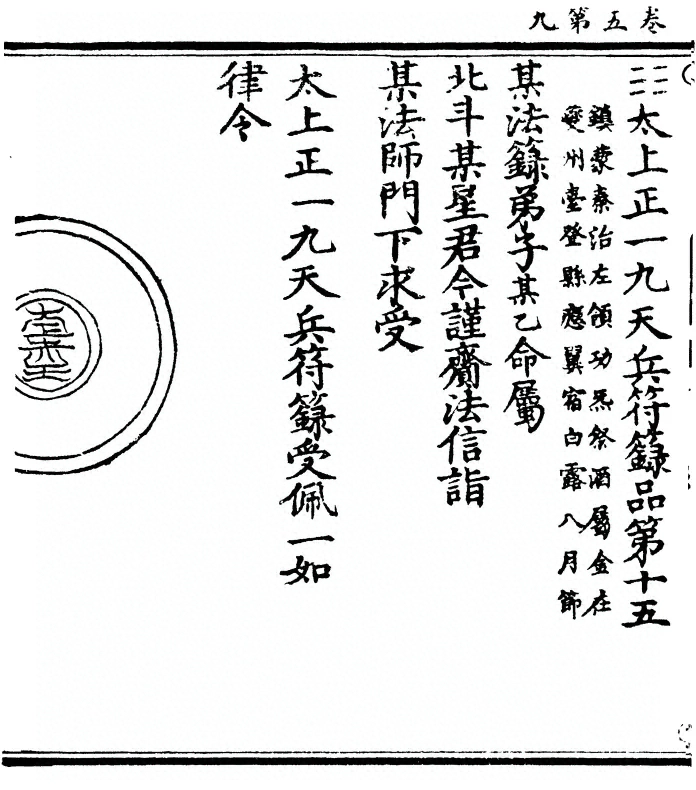 卷五第九
太上正一九天兵符籙品第十五
鎮蒙秦治左領功炁祭酒屬金在
州臺登縣應翼宿白露八月節
某法籙弟子某乙命屬
北斗某星君今謹齎法信詣
某法師門下求受
太上正一九天兵符籙受佩一如
律令